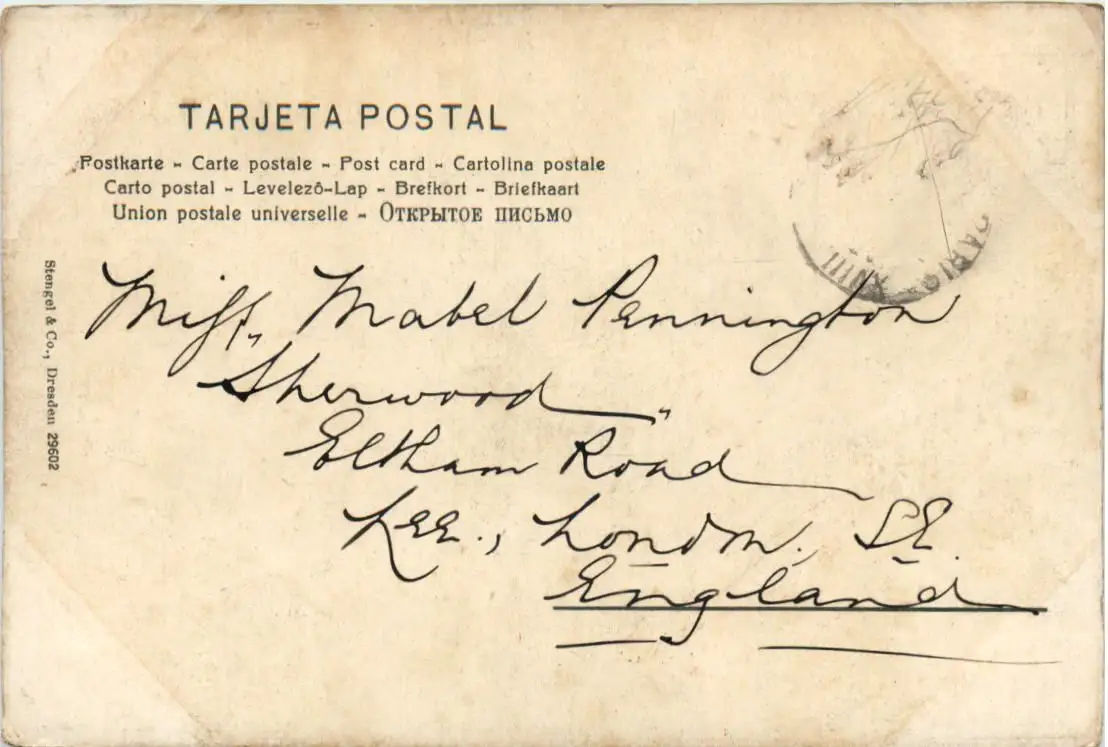 TARJETA POSTAL
Postkarte - Carte postale - Post card - Cartolina postale
Carto postal - Levelező-Lap - Brefkort - Briefkaart
Union postale universelle - Открытое письмо
Stengel & Co., Dresden 29602
Miss Mabel Pennington
Sherwood
Eltham Road
Lee., London. S.E.
England